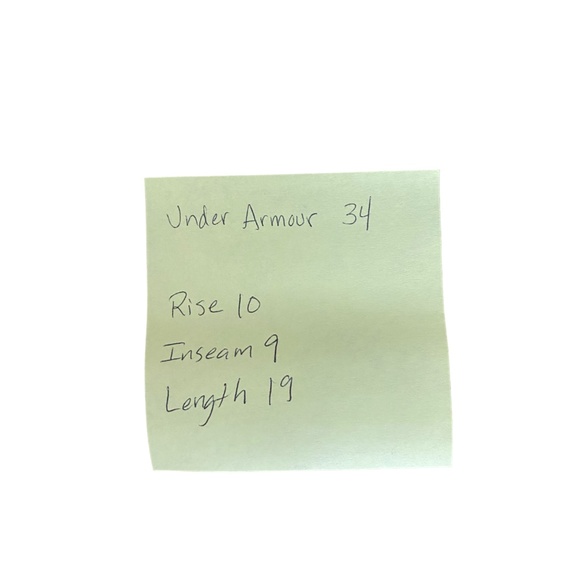 Under Armour 34
Rise 10
Inseam 9
Length 19